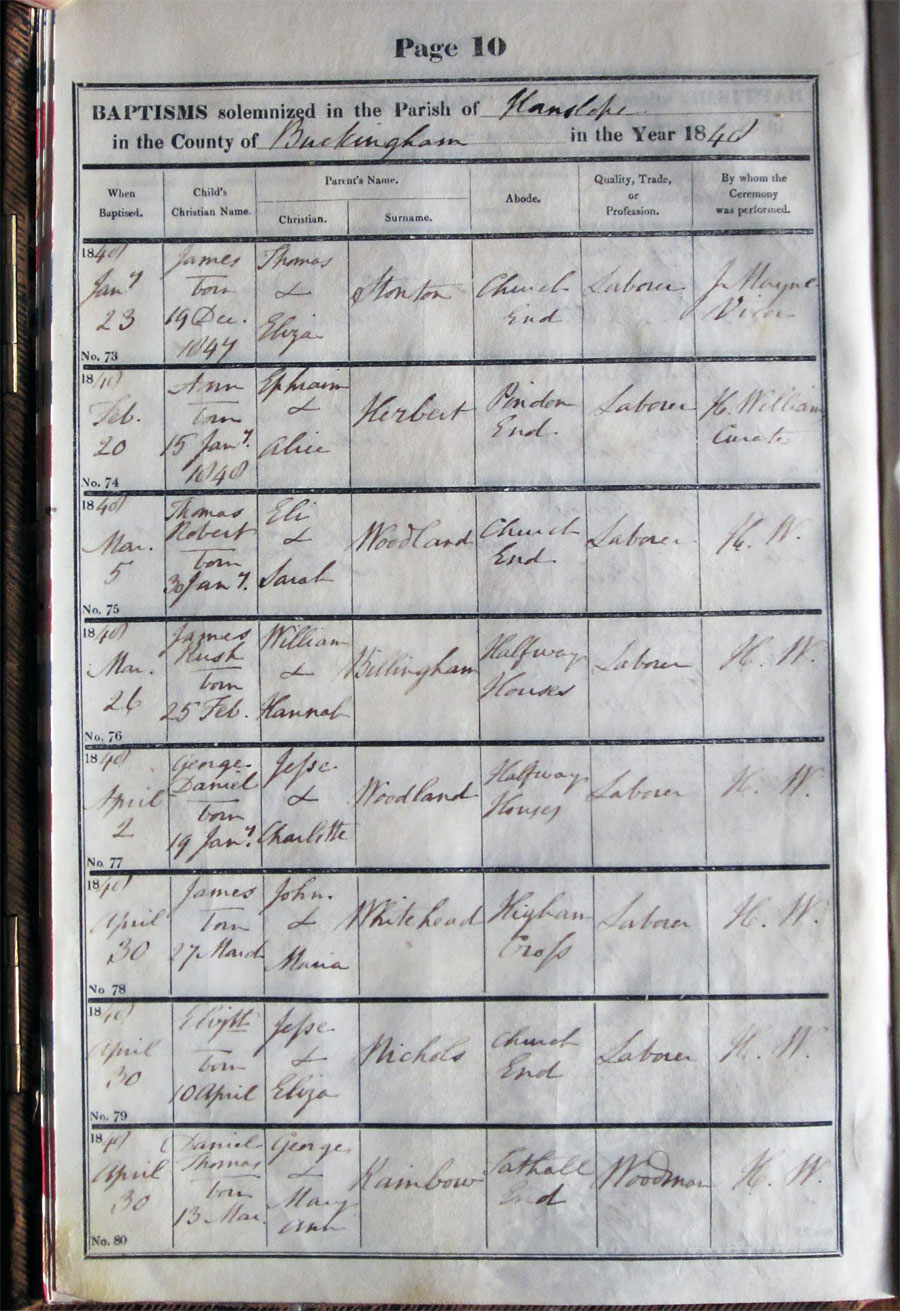 Page 10
BAPTISMS solemnized in the Parish of Hanslope
in the County of Buckingham in the Year 1848
When Baptised.
Child's Christian Name.
Parent's Name.
Christian.
Surname.
Abode.
Quality, Trade, or Profession.
By whom the Ceremony was performed.
1848 James Thomas
Jany born & Stonton Church Laborer J. Mayne
23 19 Dec. Eliza End Vicar
No. 73 1847
1848 Ann Ephraim
Feb. born & Herbert Pindon Laborer H. William
20 15 Jany. Alice End. Curate
No. 74 1848
1848 Thomas Eli
Mar. Robert & Woodland Church Laborer H. W.
5 born Sarah End
No. 75 30 Jany.
1848 James William
Mar. Rush & Billingham Halfway Laborer H. W.
26 born Hannah Houses
No. 76 25 Feb.
1848 George Jesse
April Daniel & Woodland Halfway Laborer H. W.
2 born Charlotte Houses
No. 77 19 Jany.
1848 James John
April born & Whitehead Higham Laborer H. W.
30 27 March Maria Cross
No. 78
1848 Jesse
April born & Nichols Church Laborer H. W.
30 10 April Eliza End
No. 79
1848 Daniel George
April Thomas & Rainbow Tathall Woodman H. W.
30 born Mary End
No. 80 13 Mar. Ann